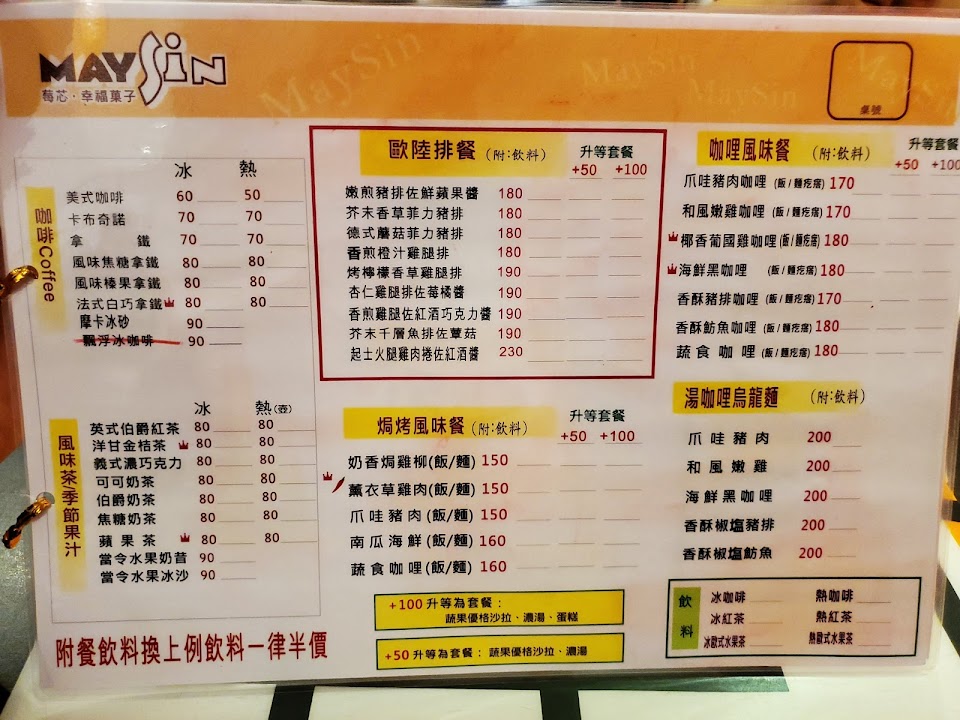 MAYSiN
莓芯·幸福菓子
MaySin
MaySin
MaySin
MaySin
桌號
咖啡Coffee
冰 熱
美式咖啡 60 50
卡布奇諾 70 70
拿鐵 70 70
風味焦糖拿鐵 80 80
風味榛果拿鐵 80 80
法式白巧拿鐵 80 80
摩卡冰砂 90
飄浮冰咖啡 90
風味茶季節果汁
冰 熱(壺)
英式伯爵紅茶 80 80
洋甘金桔茶 80 80
義式濃巧克力 80 80
可可奶茶 80 80
伯爵奶茶 80 80
焦糖奶茶 80 80
蘋果茶 80 80
當令水果奶昔 90
當令水果冰沙 90
附餐飲料換上例飲料一律半價
歐陸排餐 (附:飲料) 升等套餐
+50 +100
嫩煎豬排佐鮮蘋果醬 180
芥末香草菲力豬排 180
德式蘑菇菲力豬排 180
香煎橙汁雞腿排 180
烤檸檬香草雞腿排 190
杏仁雞腿排佐莓橘醬 190
香煎雞腿佐紅酒巧克力醬 190
芥末千層魚排佐蕈菇 190
起士火腿雞肉捲佐紅酒醬 230
焗烤風味餐 (附:飲料) 升等套餐
+50 +100
奶香焗雞柳(飯/麵) 150
薰衣草雞肉(飯/麵) 150
爪哇豬肉(飯/麵) 150
南瓜海鮮(飯/麵) 160
蔬食咖哩(飯/麵) 160
+100 升等為套餐：
蔬果優格沙拉、濃湯、蛋糕
+50 升等為套餐： 蔬果優格沙拉、濃湯
咖哩風味餐 (附:飲料) 升等套餐
+50 +100
爪哇豬肉咖哩 (飯/麵疙瘩) 170
和風嫩雞咖哩 (飯/麵疙瘩) 170
椰香葡國雞咖哩 (飯/麵疙瘩) 180
海鮮黑咖哩 (飯/麵疙瘩) 180
香酥豬排咖哩 (飯/麵疙瘩) 170
香酥魴魚咖哩 (飯/麵疙瘩) 180
蔬食咖哩 (飯/麵疙瘩) 180
湯咖哩烏龍麵 (附:飲料)
爪哇豬肉 200
和風嫩雞 200
海鮮黑咖哩 200
香酥椒塩豬排 200
香酥椒塩魴魚 200
飲料
冰咖啡 熱咖啡
冰紅茶 熱紅茶
冰歐式水果茶 熱歐式水果茶